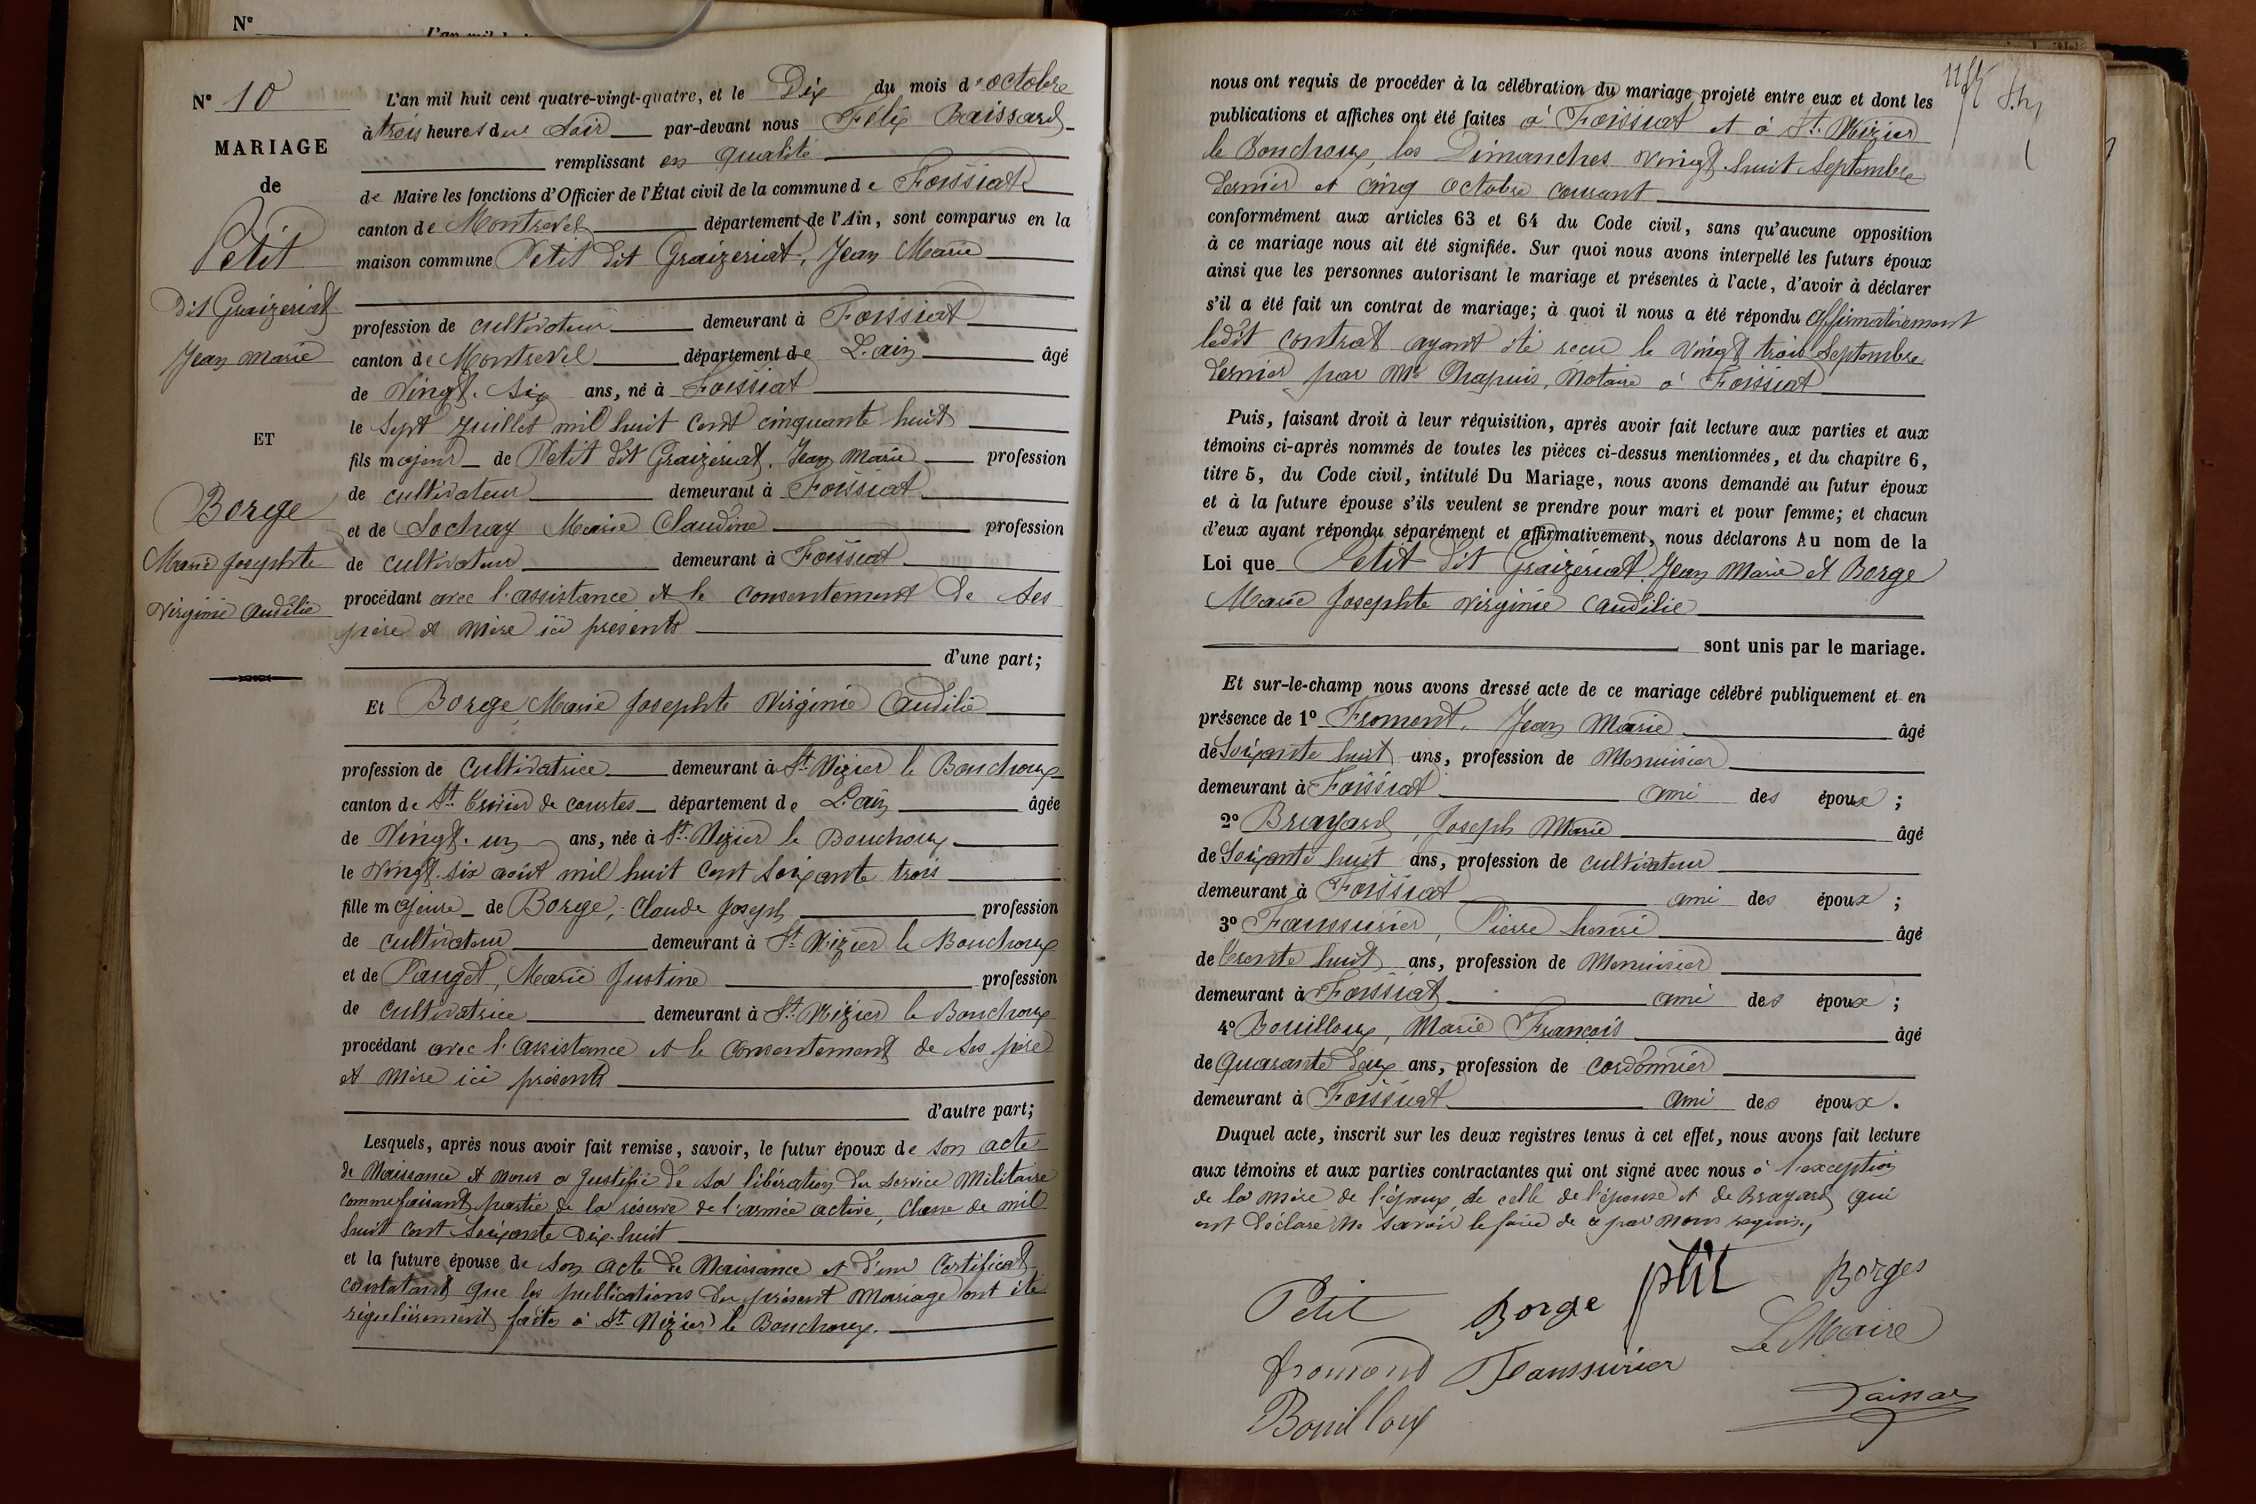 N°
N° 10
MARIAGE
de
Petit
dit Graizeriat
Jean Marie
ET
Borge
Marie Josephte
Virginie Candilie
L'an mil huit cent quatre-vingt-quatre, et le Dix du mois d'octobre
à trois heures du Soir par-devant nous Félix Baissard
remplissant en qualité
de Maire les fonctions d'Officier de l'État civil de la commune de Foissiat
canton de Montrevel département de l'Ain, sont comparus en la
maison commune Petit dit Graizeriat, Jean Marie
profession de cultivateur demeurant à Foissiat
canton de Montrevel département de L'ain âgé
de Vingt-Six ans, né à Foissiat
le Sept Juillet mil huit cent cinquante huit
fils majeur de Petit dit Graizeriat, Jean Marie profession
de cultivateur demeurant à Foissiat
et de Sochay Marie Claudine profession
de cultivateur demeurant à Foissiat
procédant avec l'assistance et le consentement de ses
père et mère ici présents
d'une part;
Et Borge, Marie Josephte Virginie Candilie
profession de cultivatrice demeurant à St. Nizier le Bouchoux
canton de St. Trivier de courtes département de L'ain âgée
de Vingt-un ans, née à St. Nizier le Bouchoux
le Vingt-six août mil huit cent soixante trois
fille majeure de Borge, Claude Joseph profession
de cultivateur demeurant à St. Nizier le Bouchoux
et de Pauget, Marie Justine profession
de cultivatrice demeurant à St. Nizier le Bouchoux
procédant avec l'assistance et le consentement de ses père
et mère ici présents
d'autre part;
Lesquels, après nous avoir fait remise, savoir, le futur époux de son acte
de Naissance et nous a justifié de sa libération du service Militaire
comme faisant partie de la réserve de l'armée active, Classe de mil
huit cent soixante Dix-huit
et la future épouse de son acte de Naissance et d'un Certificat
constatant que les publications du présent mariage ont été
régulièrement faites à St. Nizier le Bouchoux.
nous ont requis de procéder à la célébration du mariage projeté entre eux et dont les
publications et affiches ont été faites à Foissiat et à St. Nizier
le Bouchoux, les Dimanches vingt-huit Septembre
dernier et cinq octobre courant
conformément aux articles 63 et 64 du Code civil, sans qu'aucune opposition
à ce mariage nous ait été signifiée. Sur quoi nous avons interpellé les futurs époux
ainsi que les personnes autorisant le mariage et présentes à l'acte, d'avoir à déclarer
s'il a été fait un contrat de mariage; à quoi il nous a été répondu affirmativement
ledit contrat ayant été reçu le vingt trois Septembre
dernier par Me. Chapuis, Notaire à Foissiat
Puis, faisant droit à leur réquisition, après avoir fait lecture aux parties et aux
témoins ci-après nommés de toutes les pièces ci-dessus mentionnées, et du chapitre 6,
titre 5, du Code civil, intitulé Du Mariage, nous avons demandé au futur époux
et à la future épouse s'ils veulent se prendre pour mari et pour femme; et chacun
d'eux ayant répondu séparément et affirmativement, nous déclarons Au nom de la
Loi que Petit dit Graizériat Jean Marie et Borge
Marie Josephte Virginie Candilie
sont unis par le mariage.
Et sur-le-champ nous avons dressé acte de ce mariage célébré publiquement et en
présence de 1° Fromont, Jean Marie âgé
de Soixante huit ans, profession de Menuisier
demeurant à Foissiat ami des époux;
2° Brayard, Joseph Marie âgé
de Soixante huit ans, profession de cultivateur
demeurant à Foissiat ami des époux;
3° Faussurier, Pierre henri âgé
de Trente huit ans, profession de Menuisier
demeurant à Foissiat ami des époux;
4° Bouilloux, Marie François âgé
de quarante deux ans, profession de cordonnier
demeurant à Foissiat ami des époux.
Duquel acte, inscrit sur les deux registres tenus à cet effet, nous avons fait lecture
aux témoins et aux parties contractantes qui ont signé avec nous à l'exception
de la mère de l'époux, de celle de l'épouse et de Brayard qui
ont déclaré ne savoir le faire de ce par nous requis.
Petit Borge ptit Borges
Le Maire
fromond Faussurier
Bouilloux